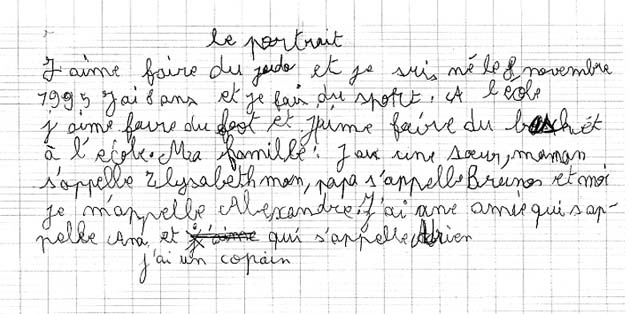 le portrait
J'aime faire du judo et je suis né le 8 novembre
1995 J'ai 8 ans et je fais du sport. A l'école
j'aime faire du foot et j'aime faire du baskét
à l'école. Ma famille : J'ai une sœur, maman
s'appelle Elysabeth mon, papa s'appelle Bruno et moi
je m'appelle Alexandre. J'ai une amie qui s'ap-
pelle Ana, et j'aime qui s'appelle Adrien
j'ai un copain